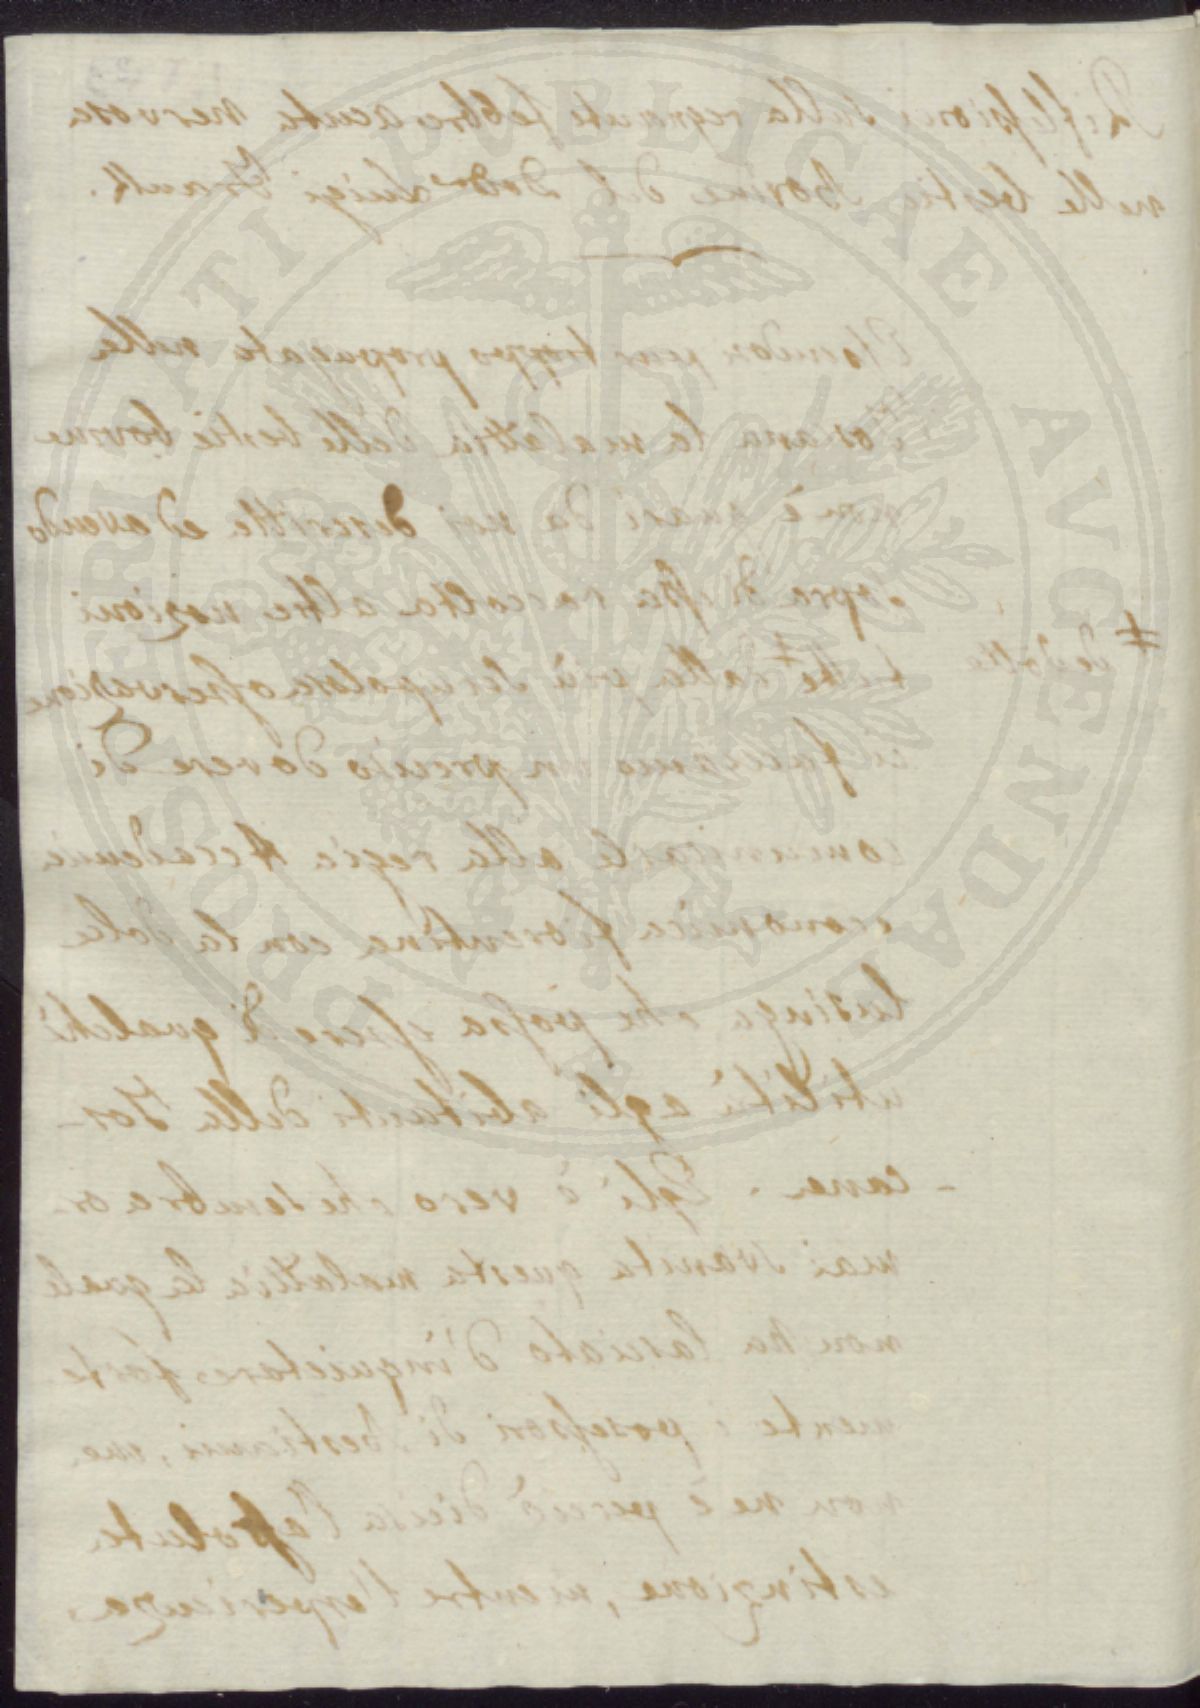 Riflessioni sulla regnante febbre acuta nervosa
nelle bestie Bovine del Dottor Luigi
Essendosi pur troppo propagata nella
Toscana la malattia delle bestie bovine
non è guari da noi descritta ed avendo
sopra di essa raccolta altre nozioni
tutte ‡ dalla più scrupolosa osservazione
‡ dedotte
ci facciamo un preciso dovere di
comunicarle alla regia Accademia
economica fiorentina con la sola
lusinga che possa essere di qualche
utilità agli abitanti della Tos-
-cana. Egli è vero che sembra or-
mai svanita questa malattia la quale
non ha lasciato d'inquietare forte
mente i possessori di bestiami, ma
non ne è perciò decisa l'assoluta
estinzione, mentre l'esperienza
PROSPERITATI PUBLICAE AVGENDAE